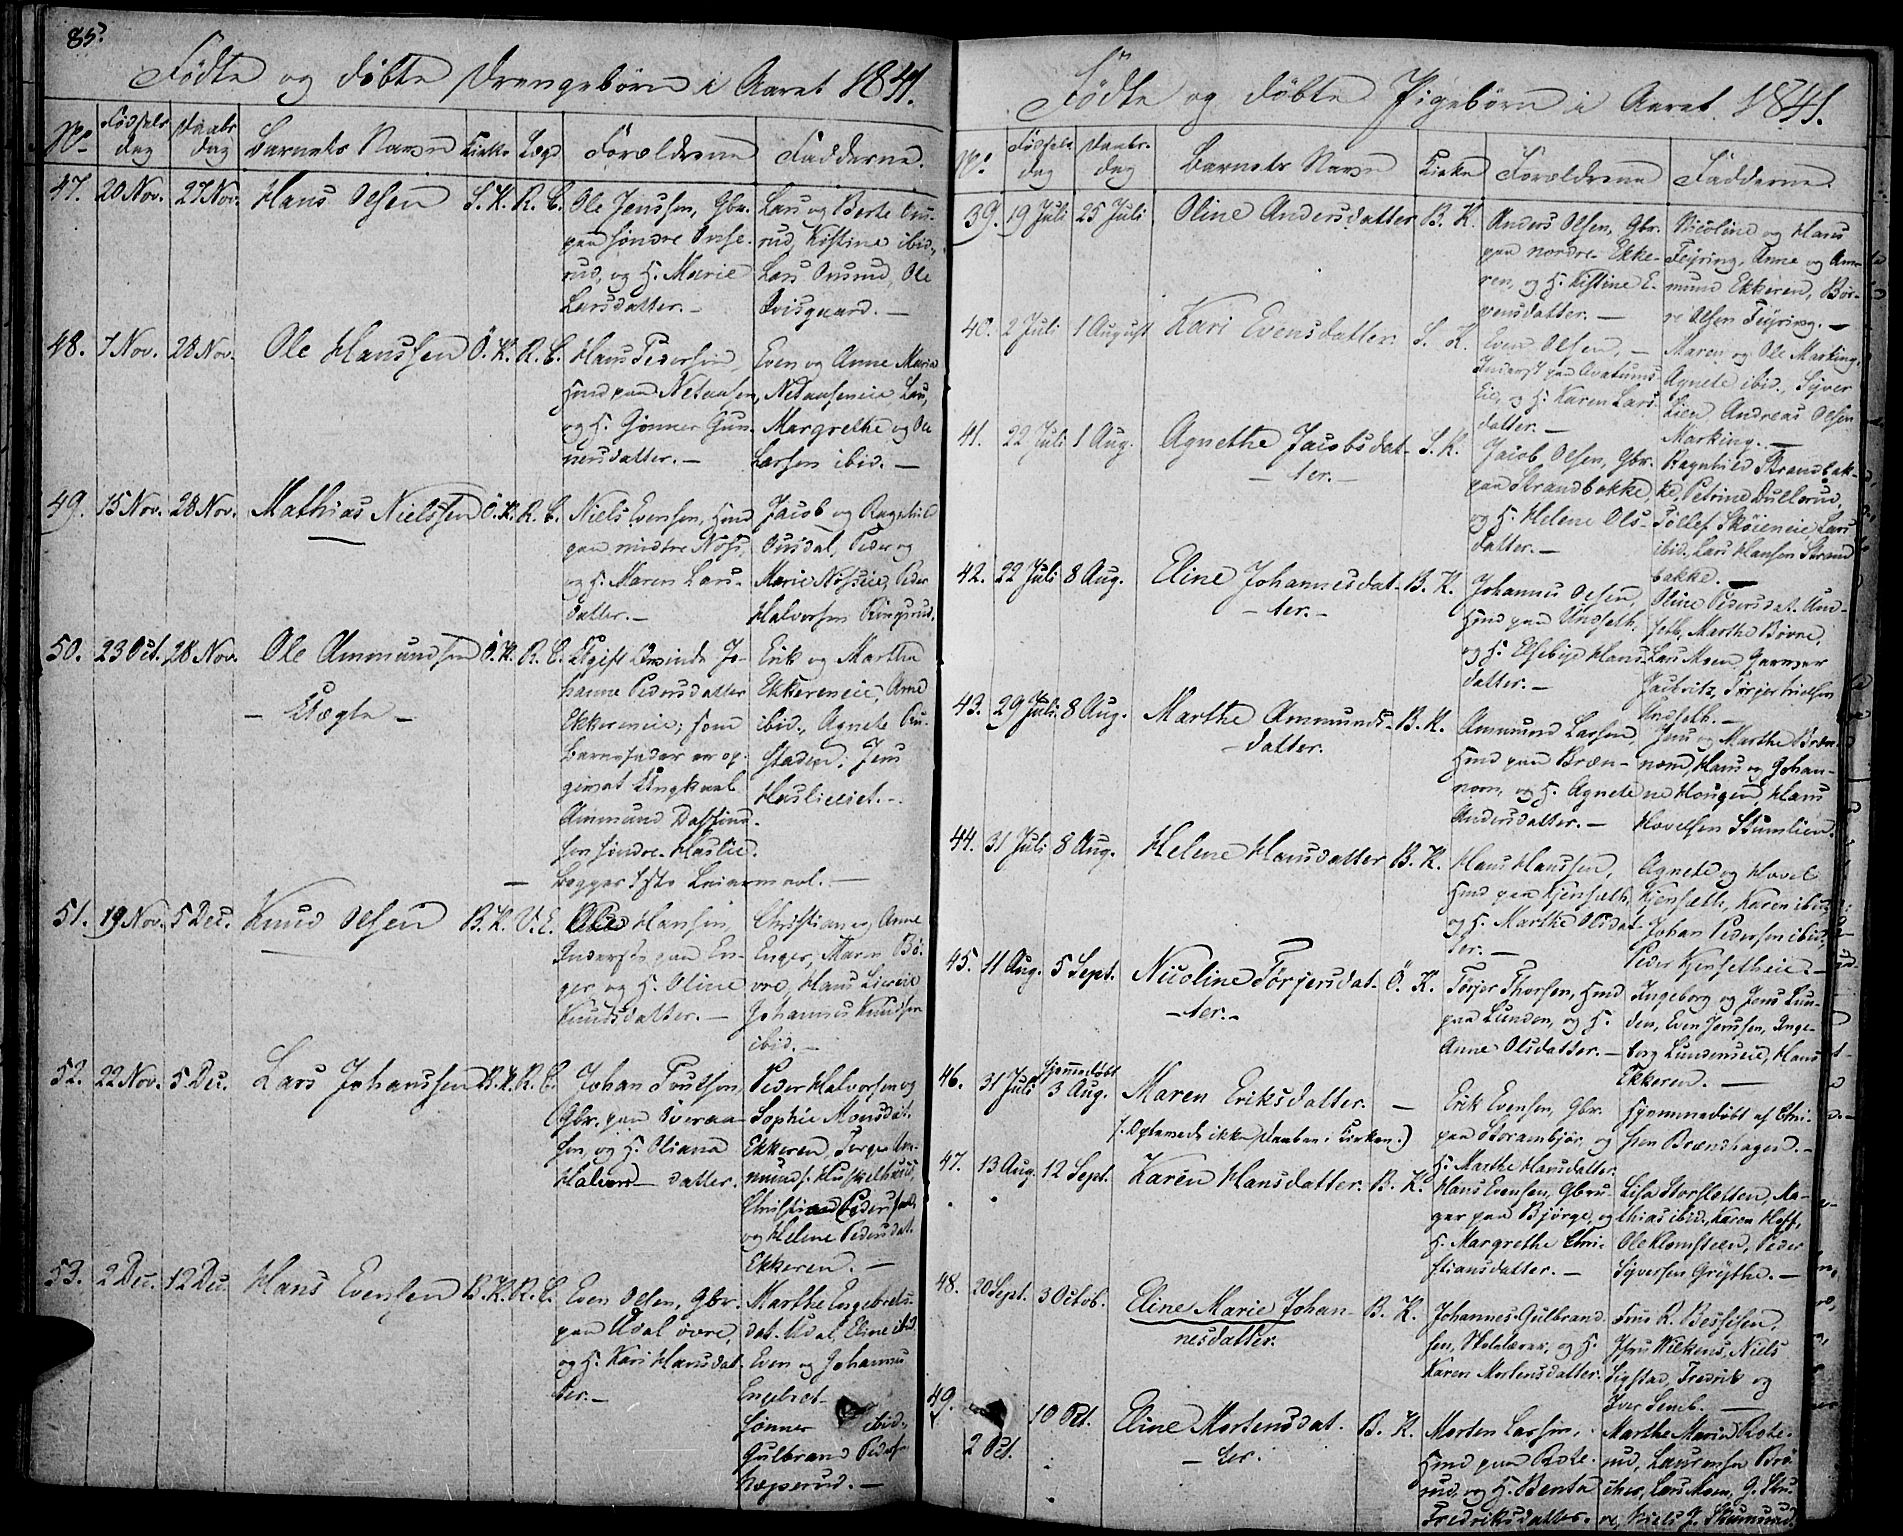 85.
Födte og døbte Drengebørn i Aaret 1841.
No. Fødsels dag Daabs dag Barnets Navn Kirke Lægd Forældrene Fadderne.
47. 20 Nov. 27 Nov. Hans Olsen S. K. R. C.
Ole Jenssen, Gbr.
paa søndre
rud, og H. Marie
Larsdatter. —
Lars og Berte
rud, Kistine ibid.,
Lars Onsrud, Ole
48. 7 Nov. 28 Nov. Ole Hanssen Ö. K. R. C.
Hans Pedersen,
Hmd paa Netaasen,
og H. Gønner Gun-
nersdatter. —
Even og Anne Marie
Netaaseneie Lars,
Margrethe og Ole
Larsen ibid. —
49. 15 Nov. 28 Nov. Mathias Nielssen Ö. K. R. C.
Niels Evensen, Hmd
paa midtre Nøss,
og H. Maren Lars-
datter. —
Jacob og Ragnhild
Onsdal, Peder og
Marie Nøsseie, Peder
Halvorsen Ringsrud.
50. 23 Oct. 28 Nov. Ole Ammundsen Ö. K. R. C.
— Uægte —
Ugift Qvinde Jo-
hanne Pedersdatter
Ekkereneie; som
Barnefader er op-
givet Ungkarl
Ammund
sen søndre Haslie.
— Begges 1ste Leiermaal. —
Erik og Marthe
Ekkereneie, Arne
ibid., Agnete
staden, Jens
Haslieeiet. —
51. 19 Nov. 5 Dec. Knud Olsen B. K. V. E.
Ole Hansen,
Inderst paa En-
ger, og H. Oline
Knudsdatter. —
Christian og Anne
Enger, Maren Bö-
vre, Hans Liereie
Johannes Knudsen
ibid. —
52. 22 Nov. 5 Dec. Lars Johanssen B. K. R. C.
Johan
Gbr. paa Överaa-
sen, og H. Oliana
Halvors- datter.
Peder Halvorsen og
Sophie Monsdat.
Ekkeren,
og Helene Pedersdat.
Ekkeren. —
53. 2 Dec. 12 Dec. Hans Evensen B. K. R. C.
Even Olsen, Gbr.
paa Udal övre,
og H. Kari Hansdat-
ter. —
Marthe Engebrets-
dat. Udal, Eline ibid.
Even og Johannes
Engebret-
sønner ibid.,
Gulbrand Peders.
Næperud. —
Födte og døbte Pigebørn i Aaret 1841.
No. Fødsels dag Daabs- dag Barnets Navn Kirke Forældrene Fadderne.
39. 19 Juli 25 Juli Oline Andersdatter B. K.
Anders Olsen, Gbr.
paa nordre Ekke-
ren, og H. Kistine E-
vensdatter. —
Nicoline og Hans
Feiring, Anne og Am-
mund Ekkeren, Bör-
re Olsen Feiring. —
40. 2 Juli 1 August Kari Evensdatter. S. K.
Even Olsen, —
Inderst paa
Eie, og H. Karen Lars-
datter. —
Maren og Ole Marking,
Agnete ibid., Syver
Lien Andreas Olsen
Marking. —
41. 22 Juli 1 Aug. Agnethe Jacobsdat-
— ter. — S. K.
Jacob Olsen, Gbr.
paa Strandbakke,
og H. Helene Ols-
datter. —
Ragnhild Strandbak-
ke, Petrine Dullerud,
Tollef Sköieneie, Lars
ibid., Lars Hansen Strand
bakke. —
42. 22 Juli 8 Aug. Eline Johannesdat-
— ter. — B. K.
Johannes Olsen,
Hmd paa Undseth.
og H. Elsebye Hans-
datter. —
Oline Pedersdat. Und-
seth, Marthe Bövre,
Lars Moen, Garver
Undseth. —
43. 29 Juli 8 Aug. Marthe Ammunds-
datter. B. K.
Ammund Larsen,
Hmd paa Bræn-
nom, og H. Agnete
Andersdatter. —
Jens og Marthe Bræn-
nom, Hans og Johan-
ne Hougen, Hans
Hovelsen Stumlien.
44. 31 Juli 8 Aug. Helene Hansdatter B. K.
Hans Hanssen,
Hmd paa Kjenseth,
og H. Marthe Olsdat-
ter. —
Agnete og Hovel
Kjenseth, Karen ibid.,
Johan Pedersen ibid.,
Peder Kjensetheie. —
45. 11 Aug. 5 Sept. Nicoline Törjersdat-
— ter. — Ö. K.
Törjer Thorsen, Hmd
paa Lunden, og H.
Anne Olsdatter. —
Ingeborg og Jens Lun-
den, Even Jenssen, Inge-
borg Lundenseie, Hans
Ekkeren. —
46. 31 Juli hjemmedøbt 3 Aug. Maren Eriksdatter. —
(: Opkomde ikke Daaben i Kirken.)
Erik Evensen, Gbr.
paa Storambjör, og
H. Marthe Hansdatter.
Hjemmedøbt af Chri-
sten Brændhagen. —
47. 13 Aug. 12 Sept. Karen Hansdatter. B. K.
Hans Evensen, Gbru-
ger paa Bjørge, og
H. Margrethe Chri-
stiansdatter. —
Lisa Storsletten, Ma-
thias ibid., Karen Hoff,
Ole Klomsteen, Peder
Syversen Grythe. —
48. 20 Sept. 3 Octob. Eline Marie Johan-
nesdatter. B. K.
Johannes Gulbrand-
sen, Skolelærer, og H.
Karen Mortensdatter.
Frue R. Bessesen,
Jfru Wilkens, Niels
Sigstad, Fredrik og
Iver Semb. —
49. 2 Oct. 10 Oct. Eline Mortensdat-
— ter. B. K.
Morten Larsen,
Hmd paa Rote-
rud, og H. Benta
Fredriksdatter.
Marthe Marie Rote-
rud, Laurense Brö-
cher, Lars Moen,